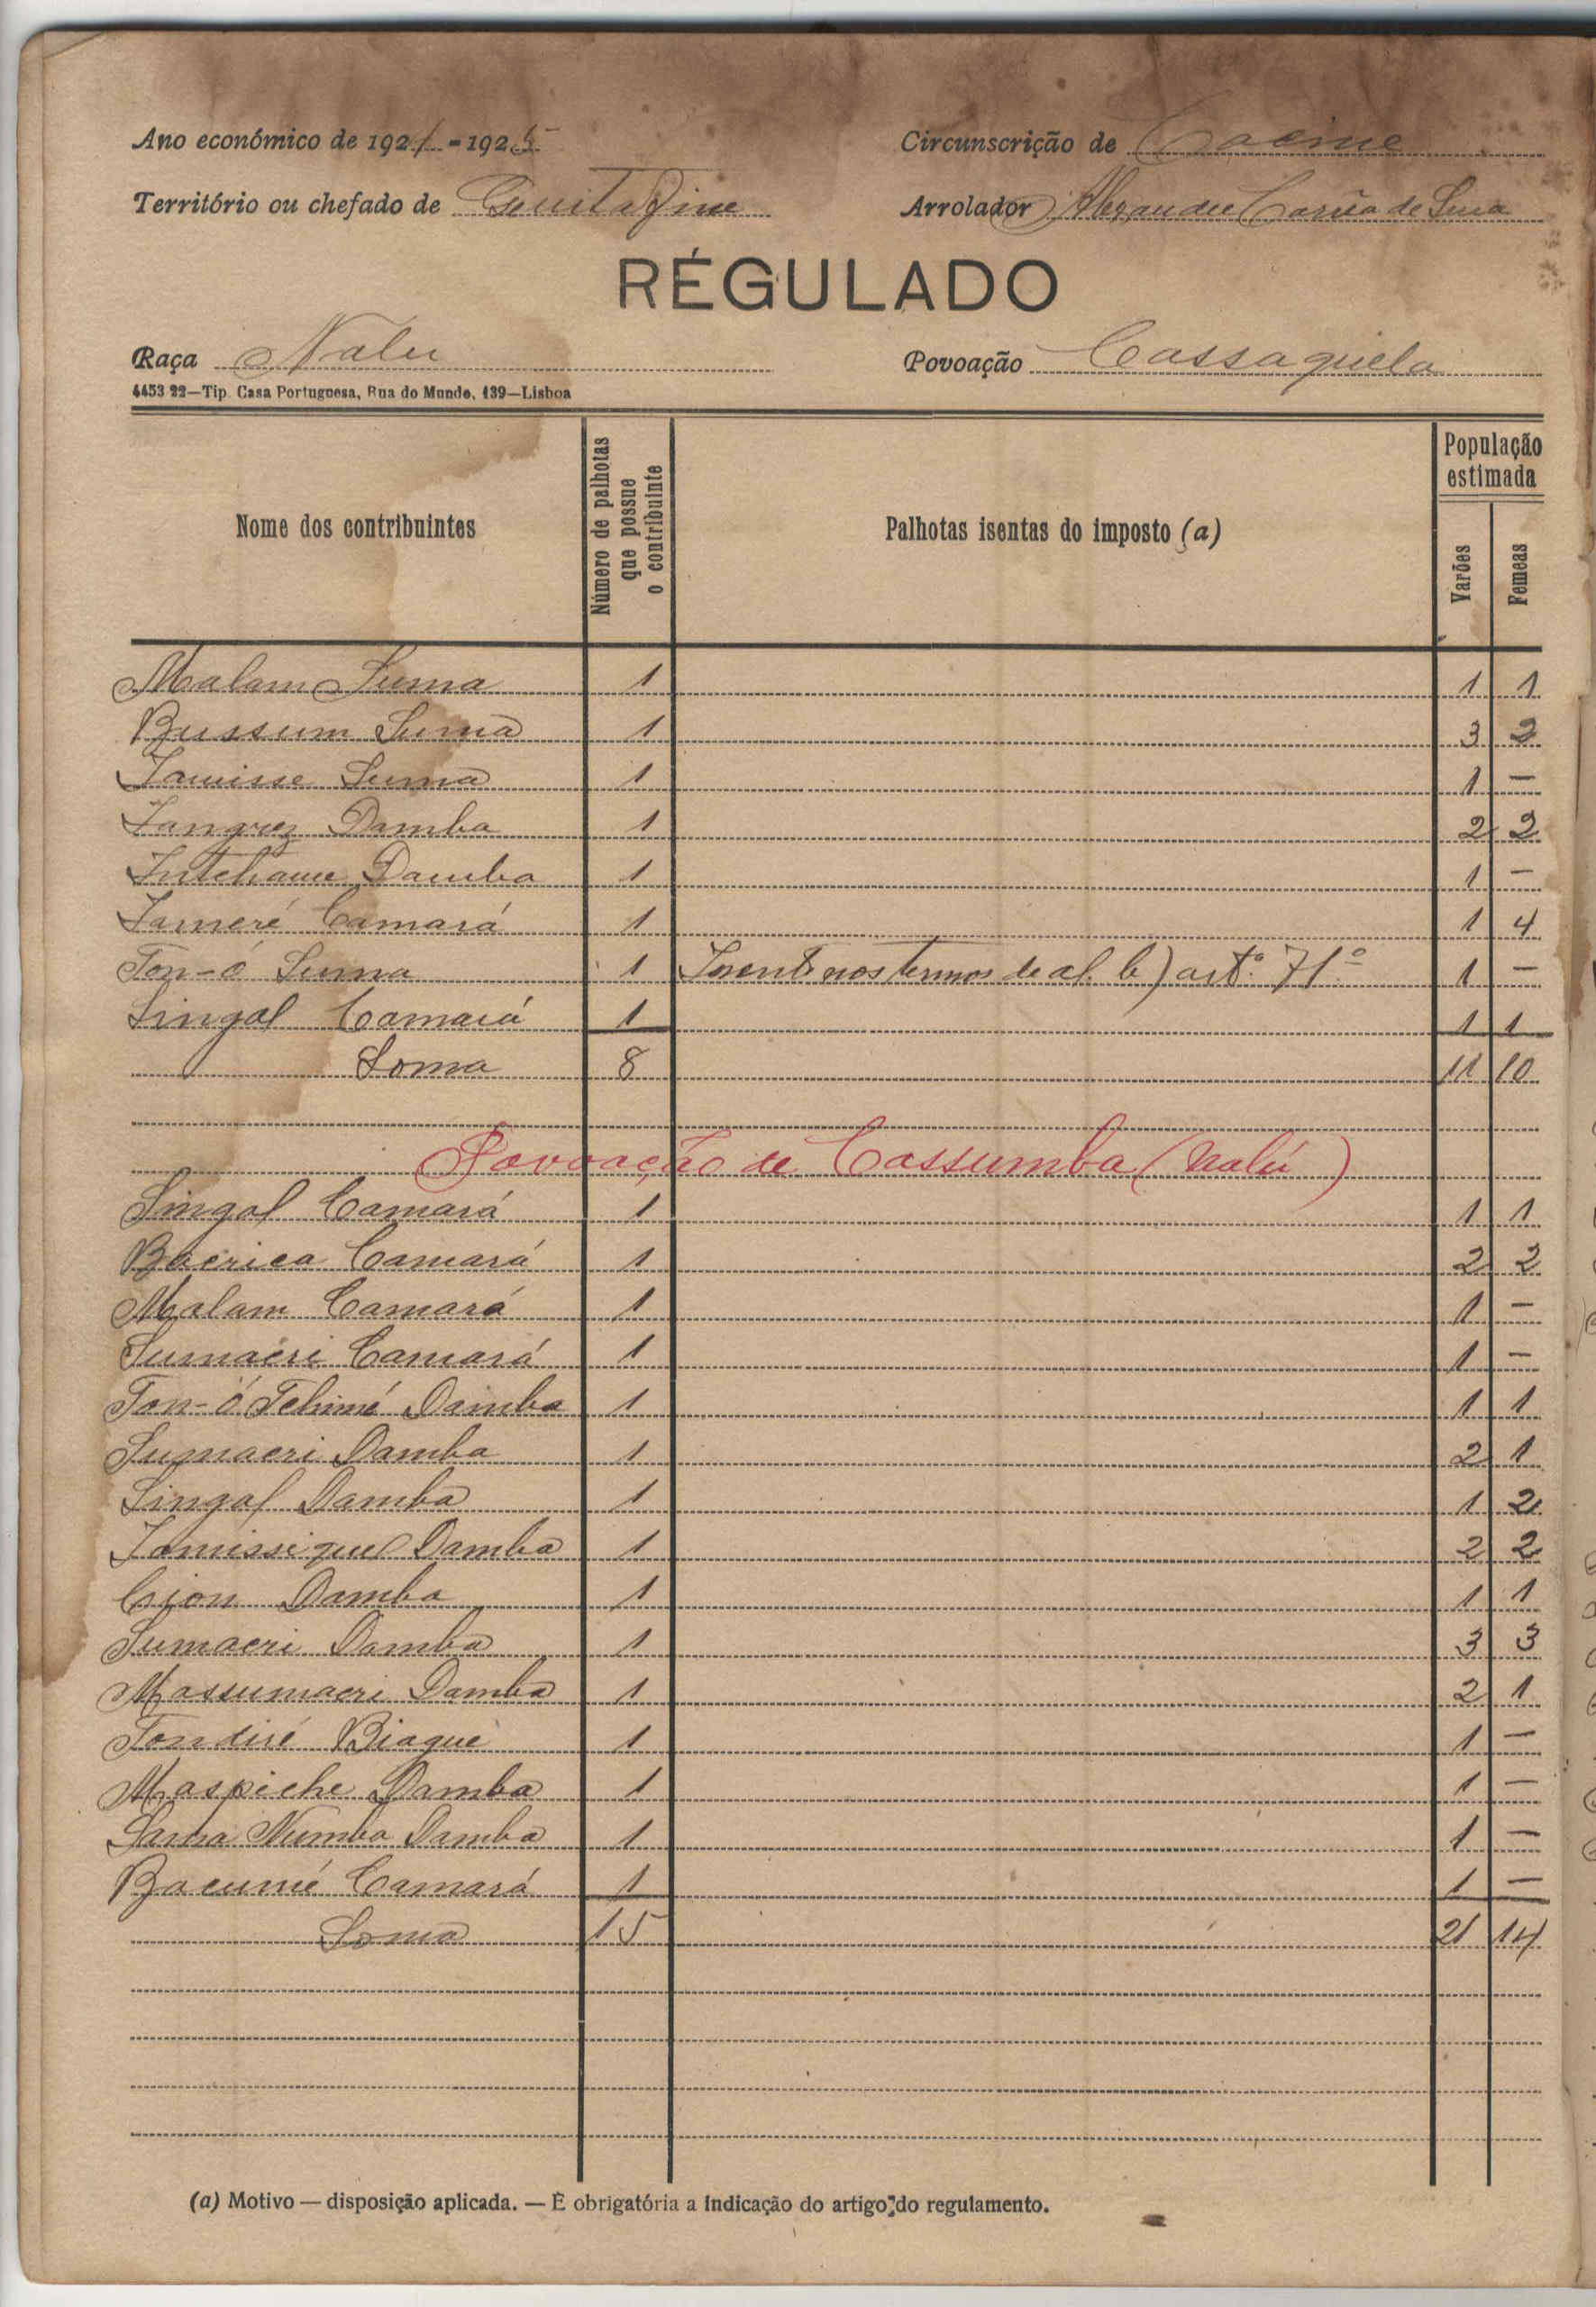 Ano económico de 192 - 1925 Circunscrição de Cacine
Território ou chefado de Arrolador Alexandre
RÉGULADO
Raça Nalu Povoação Cassaquela
4453 22—Tip. Casa Portuguesa, Rua do Mundo, 139—Lisboa
Nome dos contribuintes Número de palhotas que possue o contribuinte Palhotas isentas do imposto (a) População estimada Varões Femeas
Malam Suma 1 1 1
Bussum Suma 1 3 2
Suma 1 1 —
Damba 1 2 2
Damba 1 1 —
Cameré Camará 1 1 4
Ton-ó Suma 1 Isento nos termos de al. b) artº. 71º 1 —
Singal Camará 1 1 1
Soma 8 11 10
Povoação de Cassumba (Nalú)
Singal Camará 1 1 1
Camará 1 2 2
Malam Camará 1 1 —
Sumaeri Camará 1 1 —
Ton-ó Tchimé Damba 1 1 1
Sumaeri Damba 1 2 1
Singal Damba 1 1 2
Damba 1 2 2
Damba 1 1 1
Sumaeri Damba 1 3 3
Massumaeri Damba 1 2 1
Biague 1 1 —
Maspiche Damba 1 1 —
Lama Numba Damba 1 1 —
Bacumé Camará 1 1 —
Soma 15 21 14
(a) Motivo — disposição aplicada. — É obrigatória a indicação do artigo do regulamento.